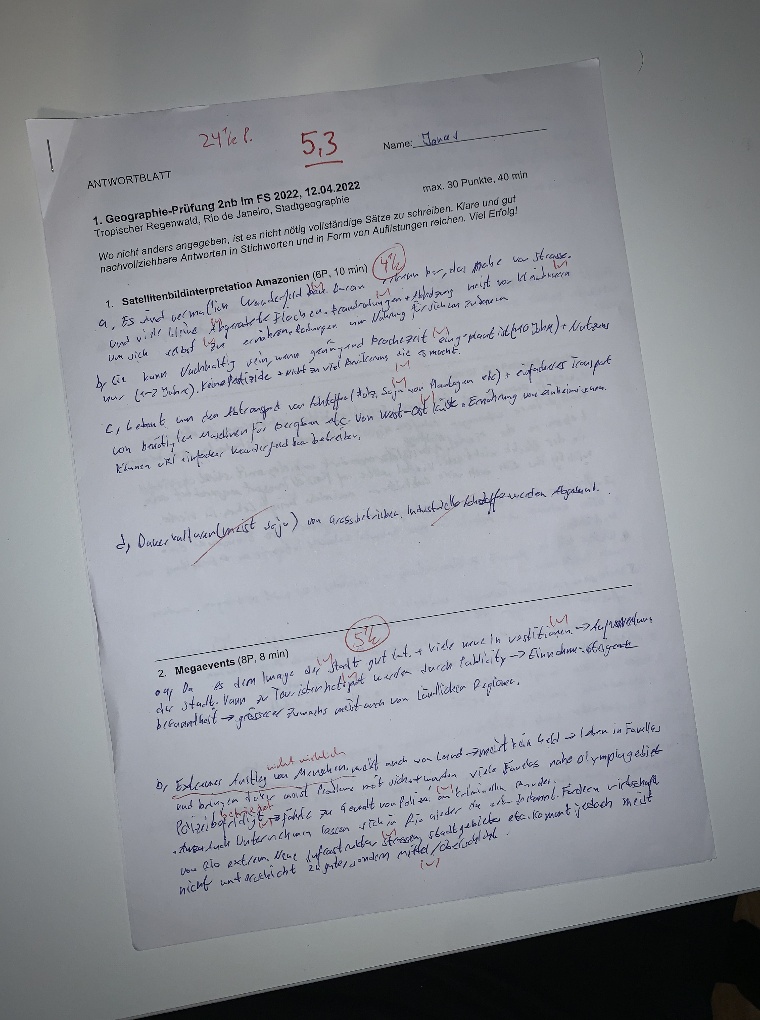 24½ P.
5,3
Name: Jonas
ANTWORTBLATT
1. Geographie-Prüfung 2nb Im FS 2022, 12.04.2022
max. 30 Punkte, 40 min
Tropischer Regenwald, Rio de Janeiro, Stadtgeographie
Wo nicht anders angegeben, ist es nicht nötig vollständige Sätze zu schreiben. Klare und gut
nachvollziehbare Antworten in Stichworten und in Form von Auflistungen reichen. Viel Erfolg!
1. Satellitenbildinterpretation Amazonien (6P, 10 min)
a, Es sind vermutlich Wanderfeld das Nahe von Strasse.
und viele kleine Abgerodete Flächen. + Abholzung meist von Kleinbauern
um sich selbst zu ernähren. Nahrung für sich an zubauen
b, Sie kann Nachhaltig sein, wenn genügend Brachezeit eingeplant ist (10 Jahre) + Nutzung
nur (1-2 Jahre). Keine Pestizide + nicht zu viel Bevölkerung die es macht.
c, Gebaut um den Abtransport von Rohstoffen (Holz, Soja von Plantagen etc) + einfacheres Transport
von benötigten Maschinen für Bergbau etc. Von West-Ost Küste. Ernährung von einheimischen.
können viel einfacher Wanderfeldbau betreiben.
d, Dauerkulturen (meist Soja) von Grossbetrieben. Industrielle Rohstoffe werden Abgebaut.
2. Megaevents (8P, 8 min)
5½
a, Da es dem Image der Stadt gut tut. + Viele neue Investitionen → Aufwertung
der Stadt. Kann zu Touristenhotspot werden durch Publicity → Einnahme
bekanntheit → grösserer Zuwachs meist auch von Ländlichen Regionen.
nicht wirklich
b, Extremer Anstieg von Menschen, meist auch von Land → meist kein Geld → leben in Favellas
und bringen meist Probleme mit viele Favelas nahe Olympiagebiet
→ führte zu Gewalt von Polizei an Kriminellen Banden.
Unternehmen lassen sich in Rio nieder die Fördern wirtschaft
von Rio extrem. Neue Infrastruktur Strassen, Stadtgebiete etc. kommt jedoch meist
nicht unterschicht zu gute, sondern mittel/oberschicht.